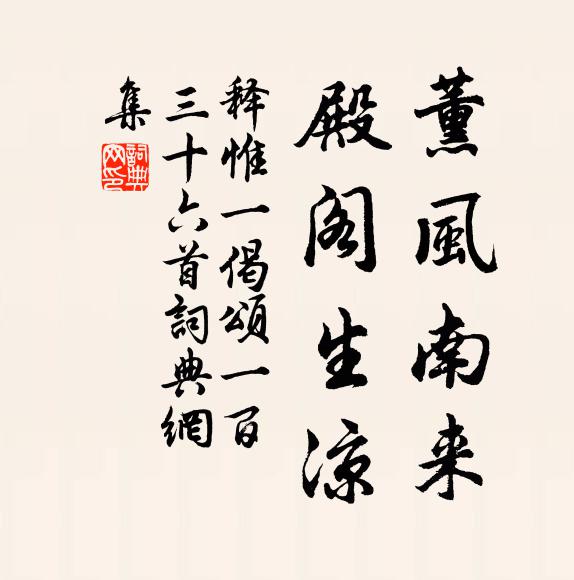 薰風南来
殿阁生凉
释惟一偈颂一百
三十六首詞典網
集
詞典網印